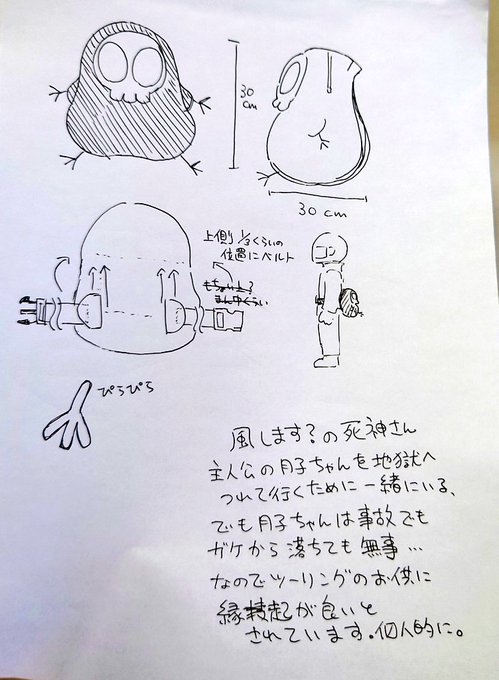 30
cm
30 cm
上側 1/3くらいの
位置にベルト
もちょい上?
まん中くらい
ぴらぴら
風します?の死神さん
主人公の月子ちゃんを地獄へ
つれて行くために一緒にいる、
でも月子ちゃんは事故でも
ガケから落ちても無事…
なのでツーリングのお供に
縁起が良いと
されています。個人的に。